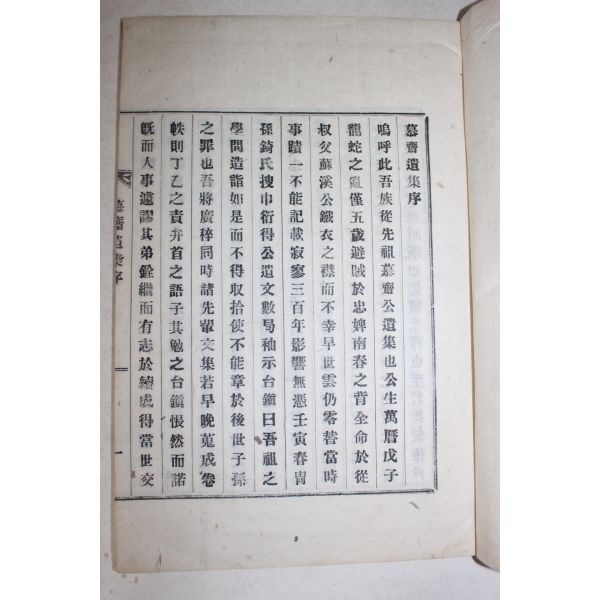 慕齋遺集序
嗚呼此吾族從先祖慕齋公遺集也公生萬曆戊子
龍蛇之亂僅五歲避賊於忠婢南春之背全命於從
叔父蘇溪公鐵衣之襟而不幸早世雲仍零替當時
事蹟一不能記載寂寥三百年影響無憑壬寅春胄
孫錡氏搜巾衍得公遺文數局袖示台鎭曰吾祖之
學問造詣如是而不得收拾使不能章於後世子孫
之罪也吾將廣稡同時諸先輩文集若早晚蒐成卷
帙則丁乙之責弁首之語子其勉之台鎭悵然而諾
旣而人事遽謬其弟銓繼而有志於續成得當世交
慕齋遺集序
一